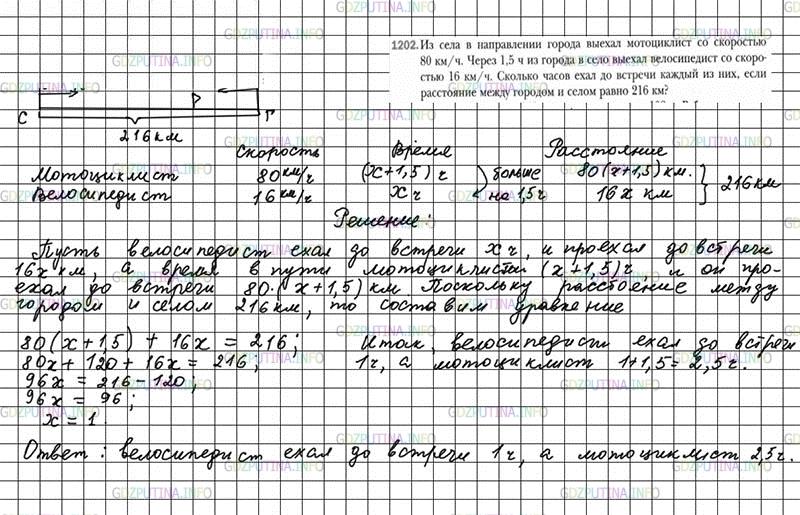 GDZPUTINA.INFO
1202. Из села в направлении города выехал мотоциклист со скоростью
80 км/ч. Через 1,5 ч из города в село выехал велосипедист со скоро-
стью 16 км/ч. Сколько часов ехал до встречи каждый из них, если
расстояние между городом и селом равно 216 км?
С Р Г
216 км
Скорость Время Расстояние
Мотоциклист 80 км/ч (х+1,5) ч больше 80(х+1,5) км. 216 км
Велосипедист 16 км/ч х ч на 1,5ч 16х км
Решение:
Пусть велосипедист ехал до встречи х ч, и проехал до встречи
16х км, а время в пути мотоциклиста (х+1,5)ч и он про-
ехал до встречи 80·(х+1,5) км. Поскольку расстояние между
городом и селом 216 км, то составим уравнение
80(х+1,5) + 16х = 216; Итак, велосипедист ехал до встречи
80х + 120 + 16х = 216; 1ч, а мотоциклист 1+1,5=2,5ч.
96х = 216-120;
96х = 96;
х = 1.
Ответ: велосипедист ехал до встречи 1ч, а мотоциклист 2,5ч.